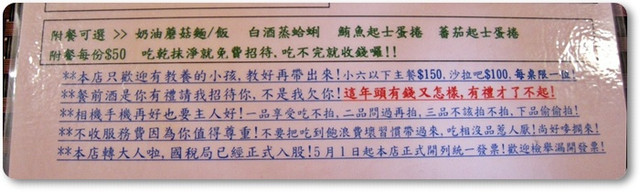 附餐可選 >> 奶油蘑菇麵/飯　白酒蒸蛤蜊　鮪魚起士蛋捲　蕃茄起士蛋捲
附餐每份$50　吃乾抹淨就免費招待,吃不完就收錢囉!!
**本店只歡迎有教養的小孩,教好再帶出來!小六以下主餐$150,沙拉吧$100,每桌限一位!
**餐前酒是你有禮請我招待你,不是我欠你!這年頭有錢又怎樣,有禮才了不起!
**相機手機再好也要主人好!一品享受吃不拍,二品問過再拍,三品不該拍不拍,下品偷偷拍!
**不收服務費因為你值得尊重!不要把吃到飽浪費壞習慣帶過來,吃相沒品惹人厭!尚好嘜擱來!
**本店轉大人啦,國稅局已經正式入股!5月1日起本店正式開列統一發票!歡迎檢舉漏開發票!